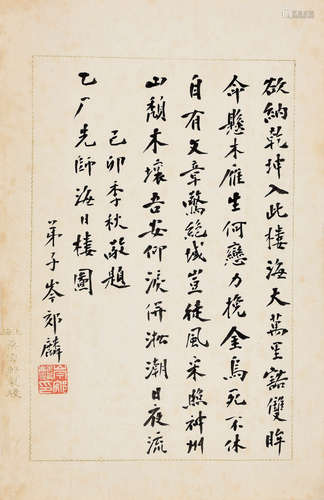 欲納乾坤入此樓海天萬里豁雙眸
命懸木雁生何戀力挽金烏死不休
自有文章驚絕域豈徒風采照神州
山頹木壞吾安仰淚併淞潮日夜流
己卯季秋敬題
乙厂先師海日樓圖
弟子岑郊麟